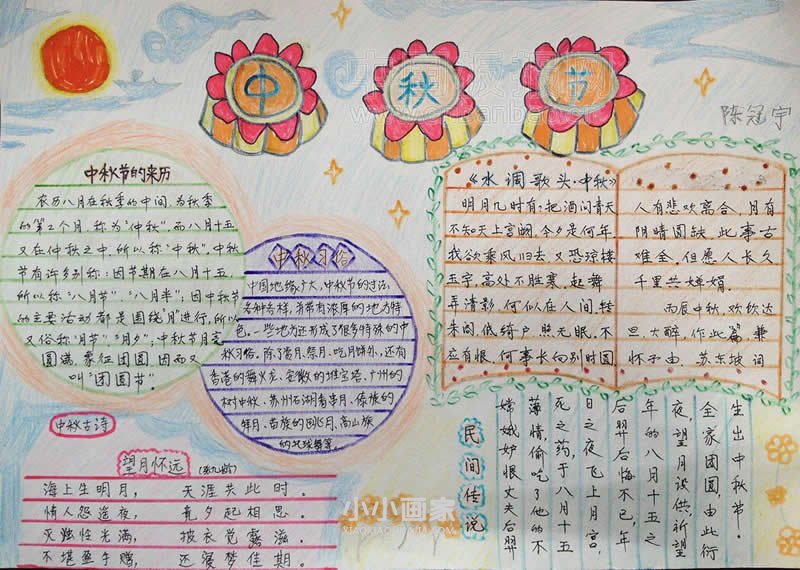 中秋节
陈冠宇
中秋节的来历
农历八月在秋季的中间,为秋季
的第2个月,称为“仲秋”,而八月十五
又在仲秋之中,所以称“中秋”,中秋
节有许多别称:因节期在八月十五,
所以称“八月节”、“八月半”;因中秋节
的主要活动都是围绕“月”进行,所以
又俗称“月节”、“月夕”;中秋节月亮
圆满,象征团圆因而又
叫“团圆节”。
中秋习俗
中国地缘广大,中秋节的过法,
各种各样,并带有浓厚的地方特
色。一些地方还形成了很多特殊的中
秋习俗。除了赏月、祭月、吃月饼外,还有
香港的舞火龙、安徽的堆宝塔、广州的
树中秋、苏州石湖看串月、傣族的
拜月、苗族的跳月、高山族
的托球舞等。
《水调歌头·中秋》
明月几时有?把酒问青天
不知天上宫阙,今夕是何年
我欲乘风归去,又恐琼楼
玉宇,高处不胜寒,起舞
弄清影,何似在人间,转
朱阁,低绮户,照无眠,不
应有恨,何事长向别时圆
人有悲欢离合,月有
阴晴圆缺,此事古
难全,但愿人长久
千里共婵娟。
丙辰中秋,欢饮达
旦,大醉,作此篇,兼
怀子由。苏东坡词
中秋古诗
望月怀远(张九龄)
海上生明月,天涯共此时。
情人怨遥夜,竟夕起相思。
灭烛怜光满,披衣觉露滋。
不堪盈手赠,还寝梦佳期。
民间传说
嫦娥妒恨丈夫后羿
薄情,偷吃了他的不
死之药,于八月十五
日之夜飞上月宫,
后羿后悔不已,年
年的八月十五之
夜,望月设供,祈望
全家团圆,由此衍
生出中秋节。
小小画家
XIAOXIAOHUAJIA.COM